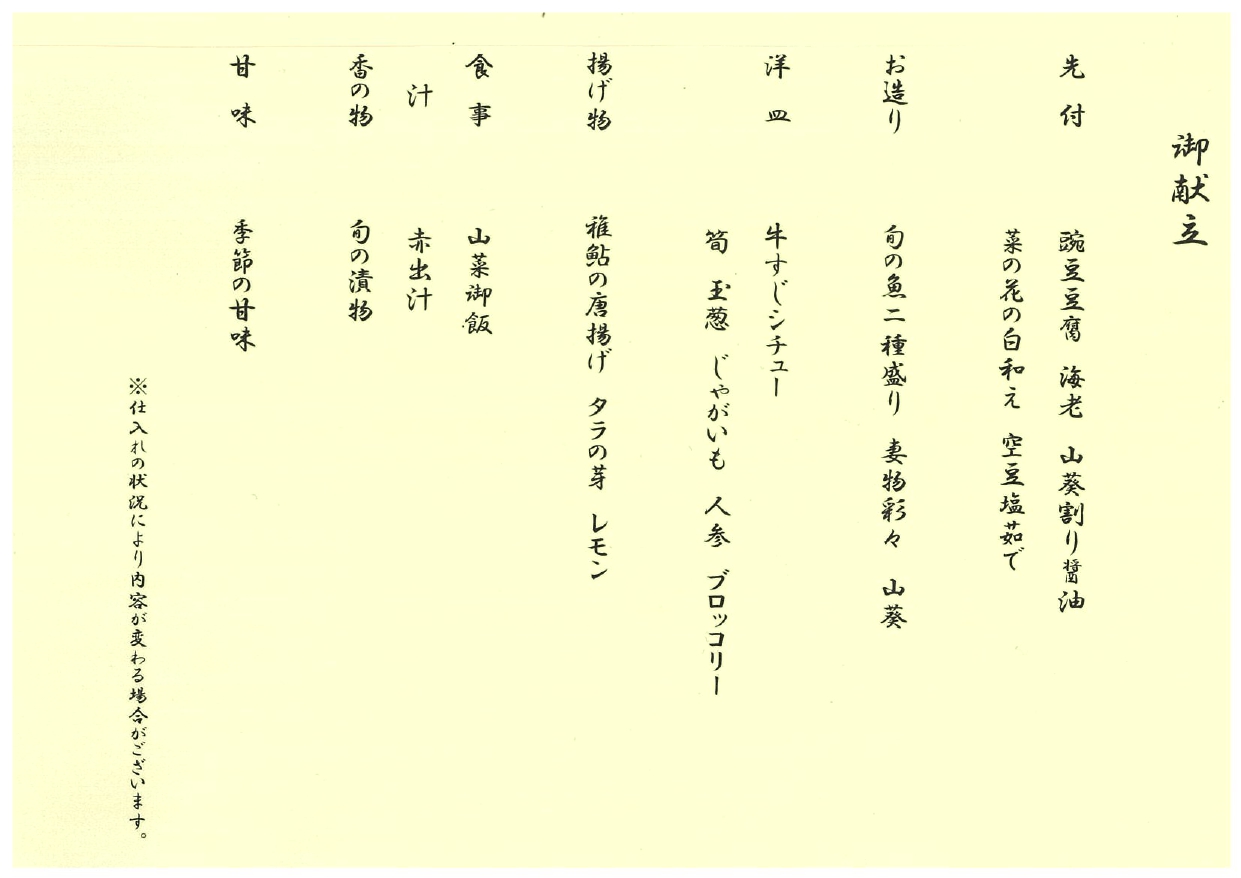 御献立
先付　豌豆豆腐　海老　山葵割り醤油
菜の花の白和え　空豆塩茹で
お造り　旬の魚二種盛り　妻物彩々　山葵
洋皿　牛すじシチュー
筍　玉葱　じゃがいも　人参　ブロッコリー
揚げ物　稚鮎の唐揚げ　タラの芽　レモン
食事　山菜御飯
汁　赤出汁
香の物　旬の漬物
甘味　季節の甘味
※仕入れの状況により内容が変わる場合がございます。